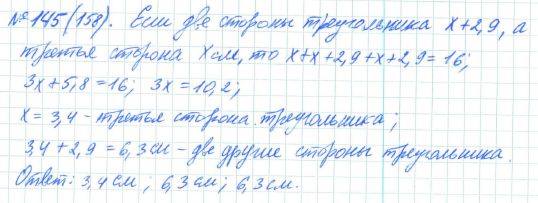 № 145(158). Если две стороны треугольника x+2,9, а
третья сторона x см, то x+x+2,9+x+2,9=16;
3x+5,8=16; 3x=10,2;
x=3,4 - третья сторона треугольника;
3,4+2,9=6,3см - две другие стороны треугольника.
Ответ: 3,4см; 6,3см; 6,3см.